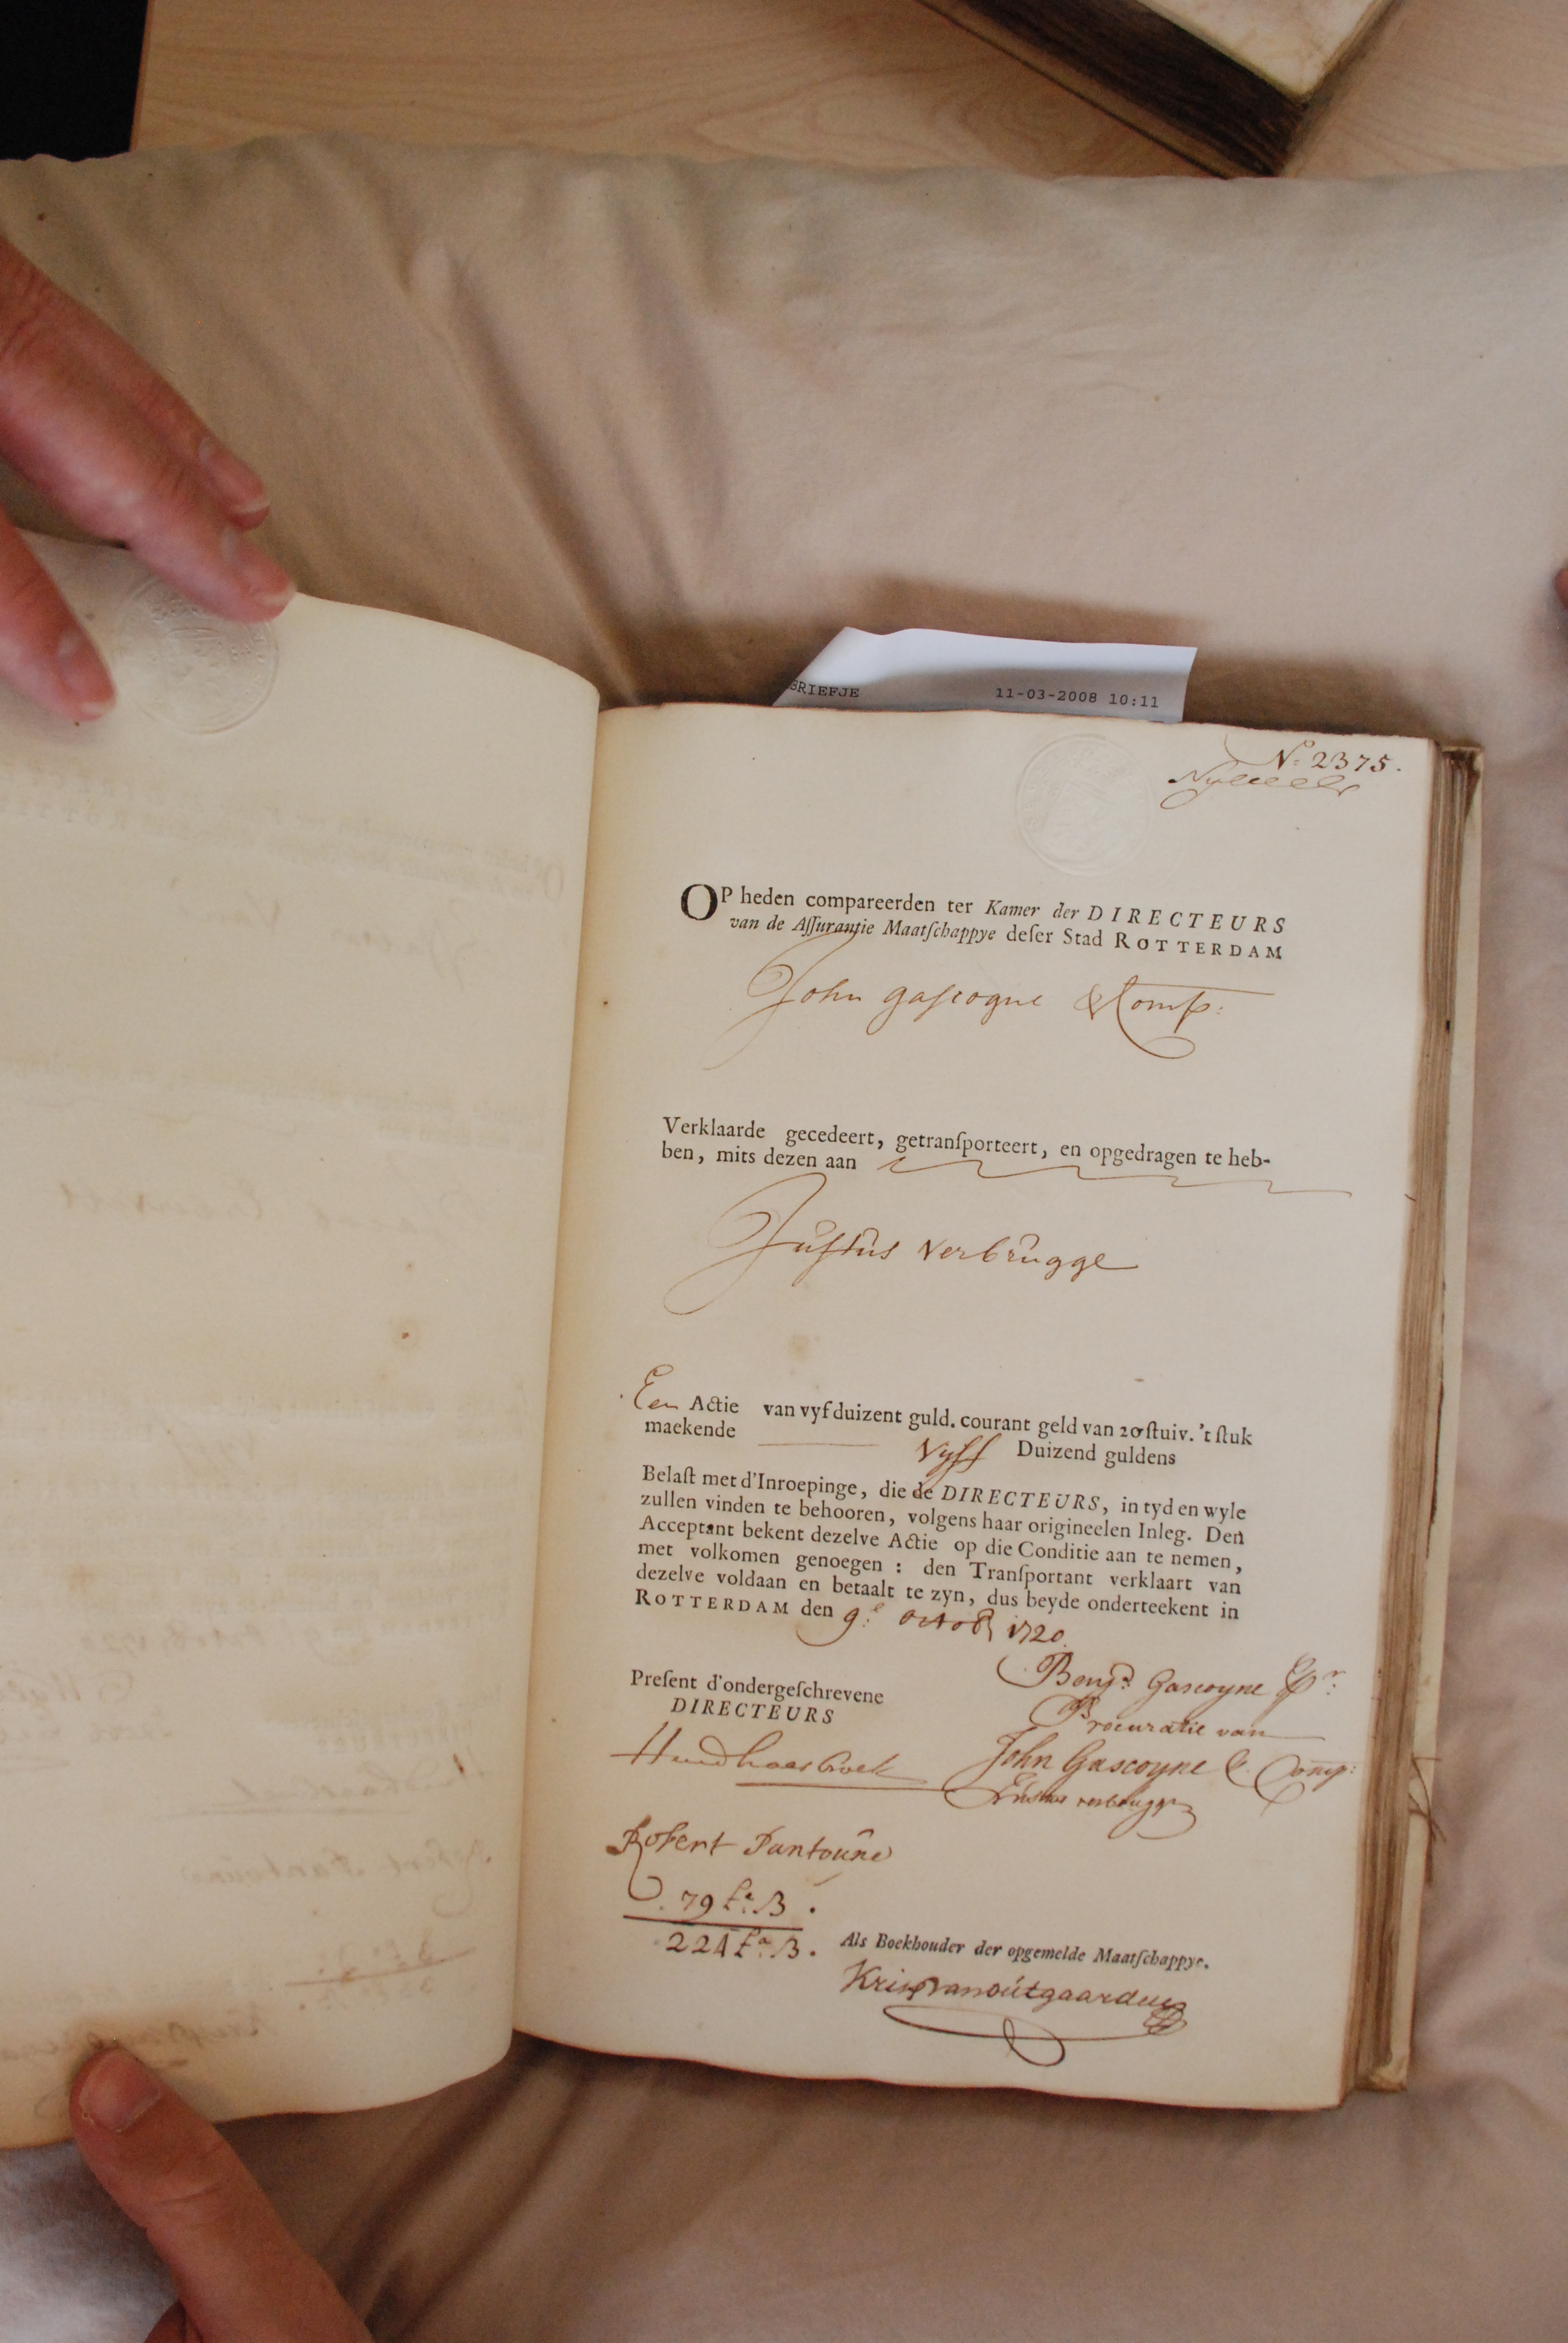 BRIEFJE 11-03-2008 10:11
No 2375.
OP heden compareerden ter Kamer der DIRECTEURS
van de Aſſurantie Maatſchappye deſer Stad ROTTERDAM
John gaſcogne & Comp:
Verklaarde gecedeert, getranſporteert, en opgedragen te heb-
ben, mits dezen aan
Juſtus verbrugge
Een Actie van vyf duizent guld. courant geld van 20 ſtuiv. 't ſtuk
maekende Vyff Duizend guldens
Belaſt met d'Inroepinge, die de DIRECTEURS, in tyd en wyle
zullen vinden te behooren, volgens haar origineelen Inleg. Den
Acceptant bekent dezelve Actie op die Conditie aan te nemen,
met volkomen genoegen : den Tranſportant verklaart van
dezelve voldaan en betaalt te zyn, dus beyde onderteekent in
ROTTERDAM den 9e octob 1720.
Benj. Gascoyne pr:
Procuratie van
Preſent d'ondergeſchrevene
DIRECTEURS
John Gascoyne & Comp:
Justus verbrugge
Robert Fantoune
79 La: B.
224 La: B.
Als Boekhouder der opgemelde Maatſchappye.
Kris vanoutgaarden